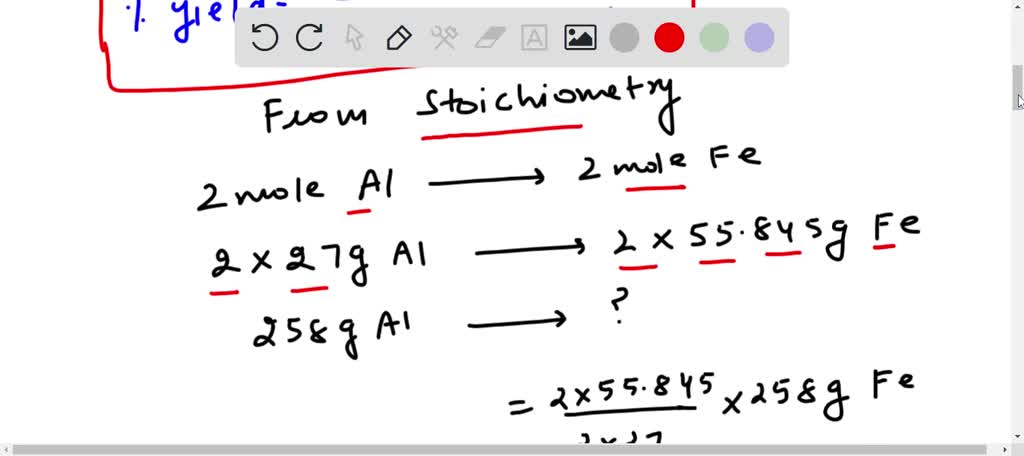 % yield
From Stoichiometry
2 mole Al → 2 mole Fe
2 × 27g Al → 2 × 55.845g Fe
258g Al → ?
= 2×55.845 × 258g Fe
2×27
A